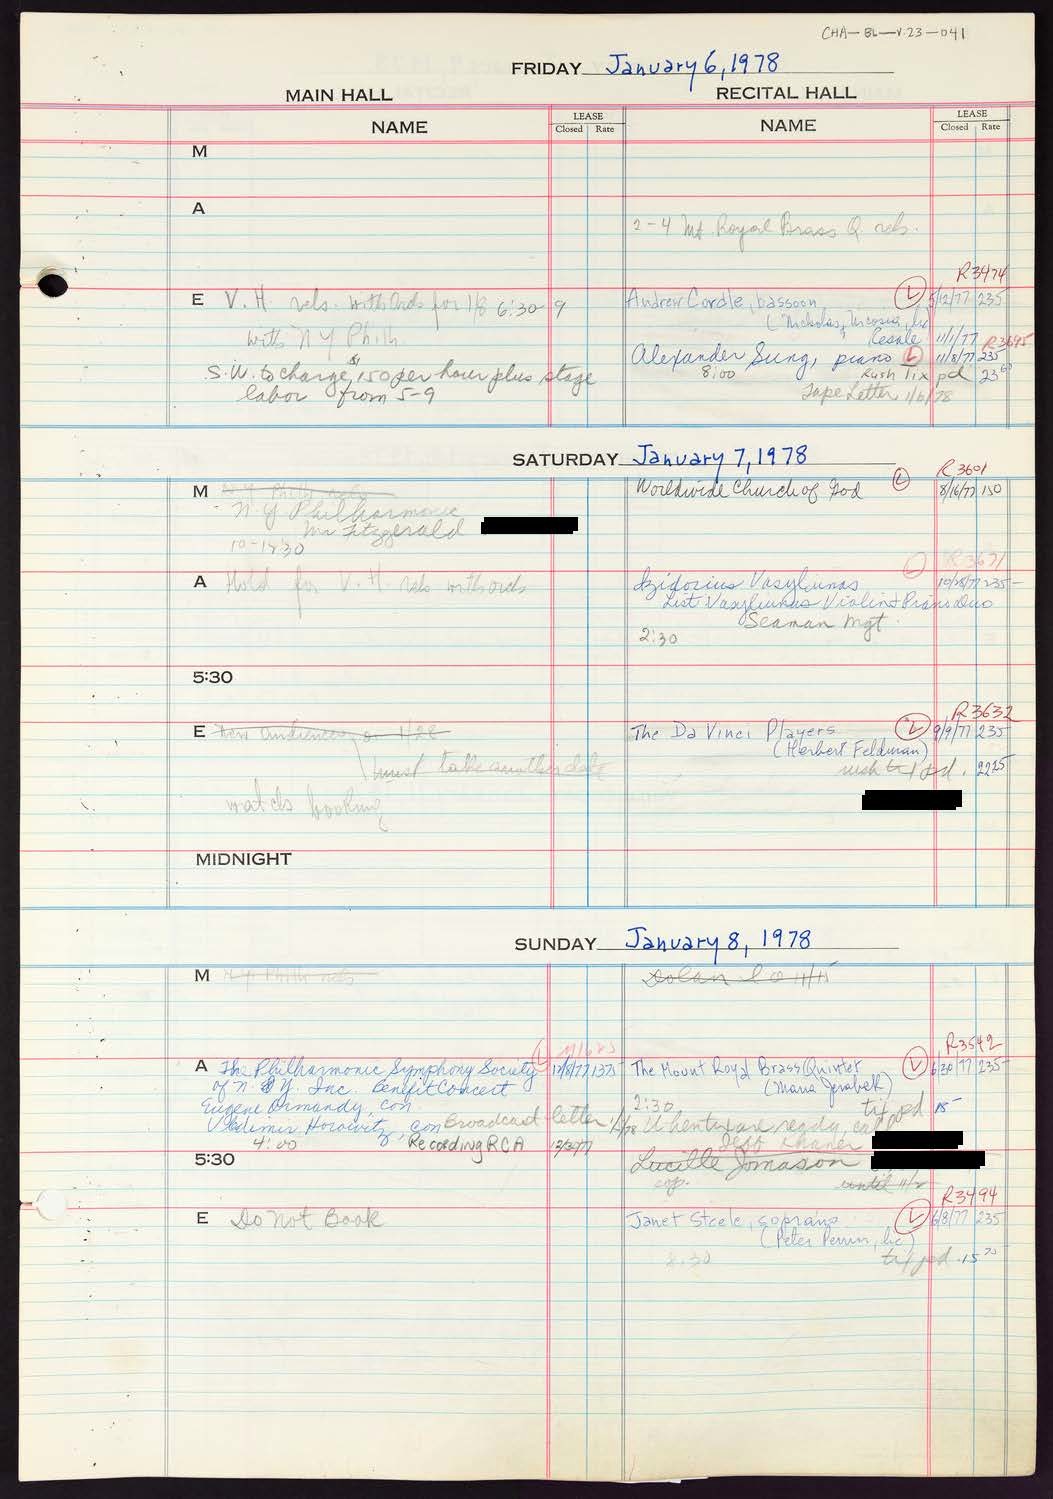 CHA-BL-V.23-041
FRIDAY January 6, 1978
MAIN HALL
RECITAL HALL
NAME
LEASE
Closed Rate
NAME
LEASE
Closed Rate
M
A
2-4 Mt Royal Brass Q rehs.
R3474
E V. H. rehs. with Ords for 1/8 6:30-9
with N Y Phil.
S.W. to charge, 150 per hour plus stage
labor from 5-9
Andrew Cordle, bassoon L 5/12/77 235-
Resale 11/1/77 R3695
Alexander Sung, piano L 11/8/77 235
8:00 Rush Tix pd 23
Tape Letter 1/6/78
SATURDAY January 7, 1978
R3601
M N.Y. Philh rehs
N Y Philharmonic
Mr Fitzgerald
10-1230
Worldwide Church of God L 8/16/77 150
R3671
A Hold for V. H. rehs with ords
Izidorius Vasyliunas 10/28/77 235-
List Vasyliunas Violin & Piano Duo
Seaman Mgt.
2:30
5:30
R3632
E New Audiences 1/28
must take another date
watch booking
The Da Vinci Players L 9/9/77 235-
(Herbert Feldman)
rush tix pd. 2225
MIDNIGHT
SUNDAY January 8, 1978
M N.Y. Philh rehs
Dolan 11/15
R3542
A The Philharmonic Symphony Society L 12/8/77 1375-
of N. Y. Inc. Benefit Concert
Eugene Ormandy, con.
Vladimir Horowitz, con Broadcast letter
4:00 Recording RCA 12/30/77
The Mount Royal Brass Quintet L 6/30/77 235-
(Maria Jerabek)
2:30 tix pd 15-
When tix are ready, call
Lucille Jomason
until 11/2
5:30
R3494
E Do Not Book
Janet Steele, soprano L 6/8/77 235
(Peter Perrin, Inc)
8:30 tix pd. 15